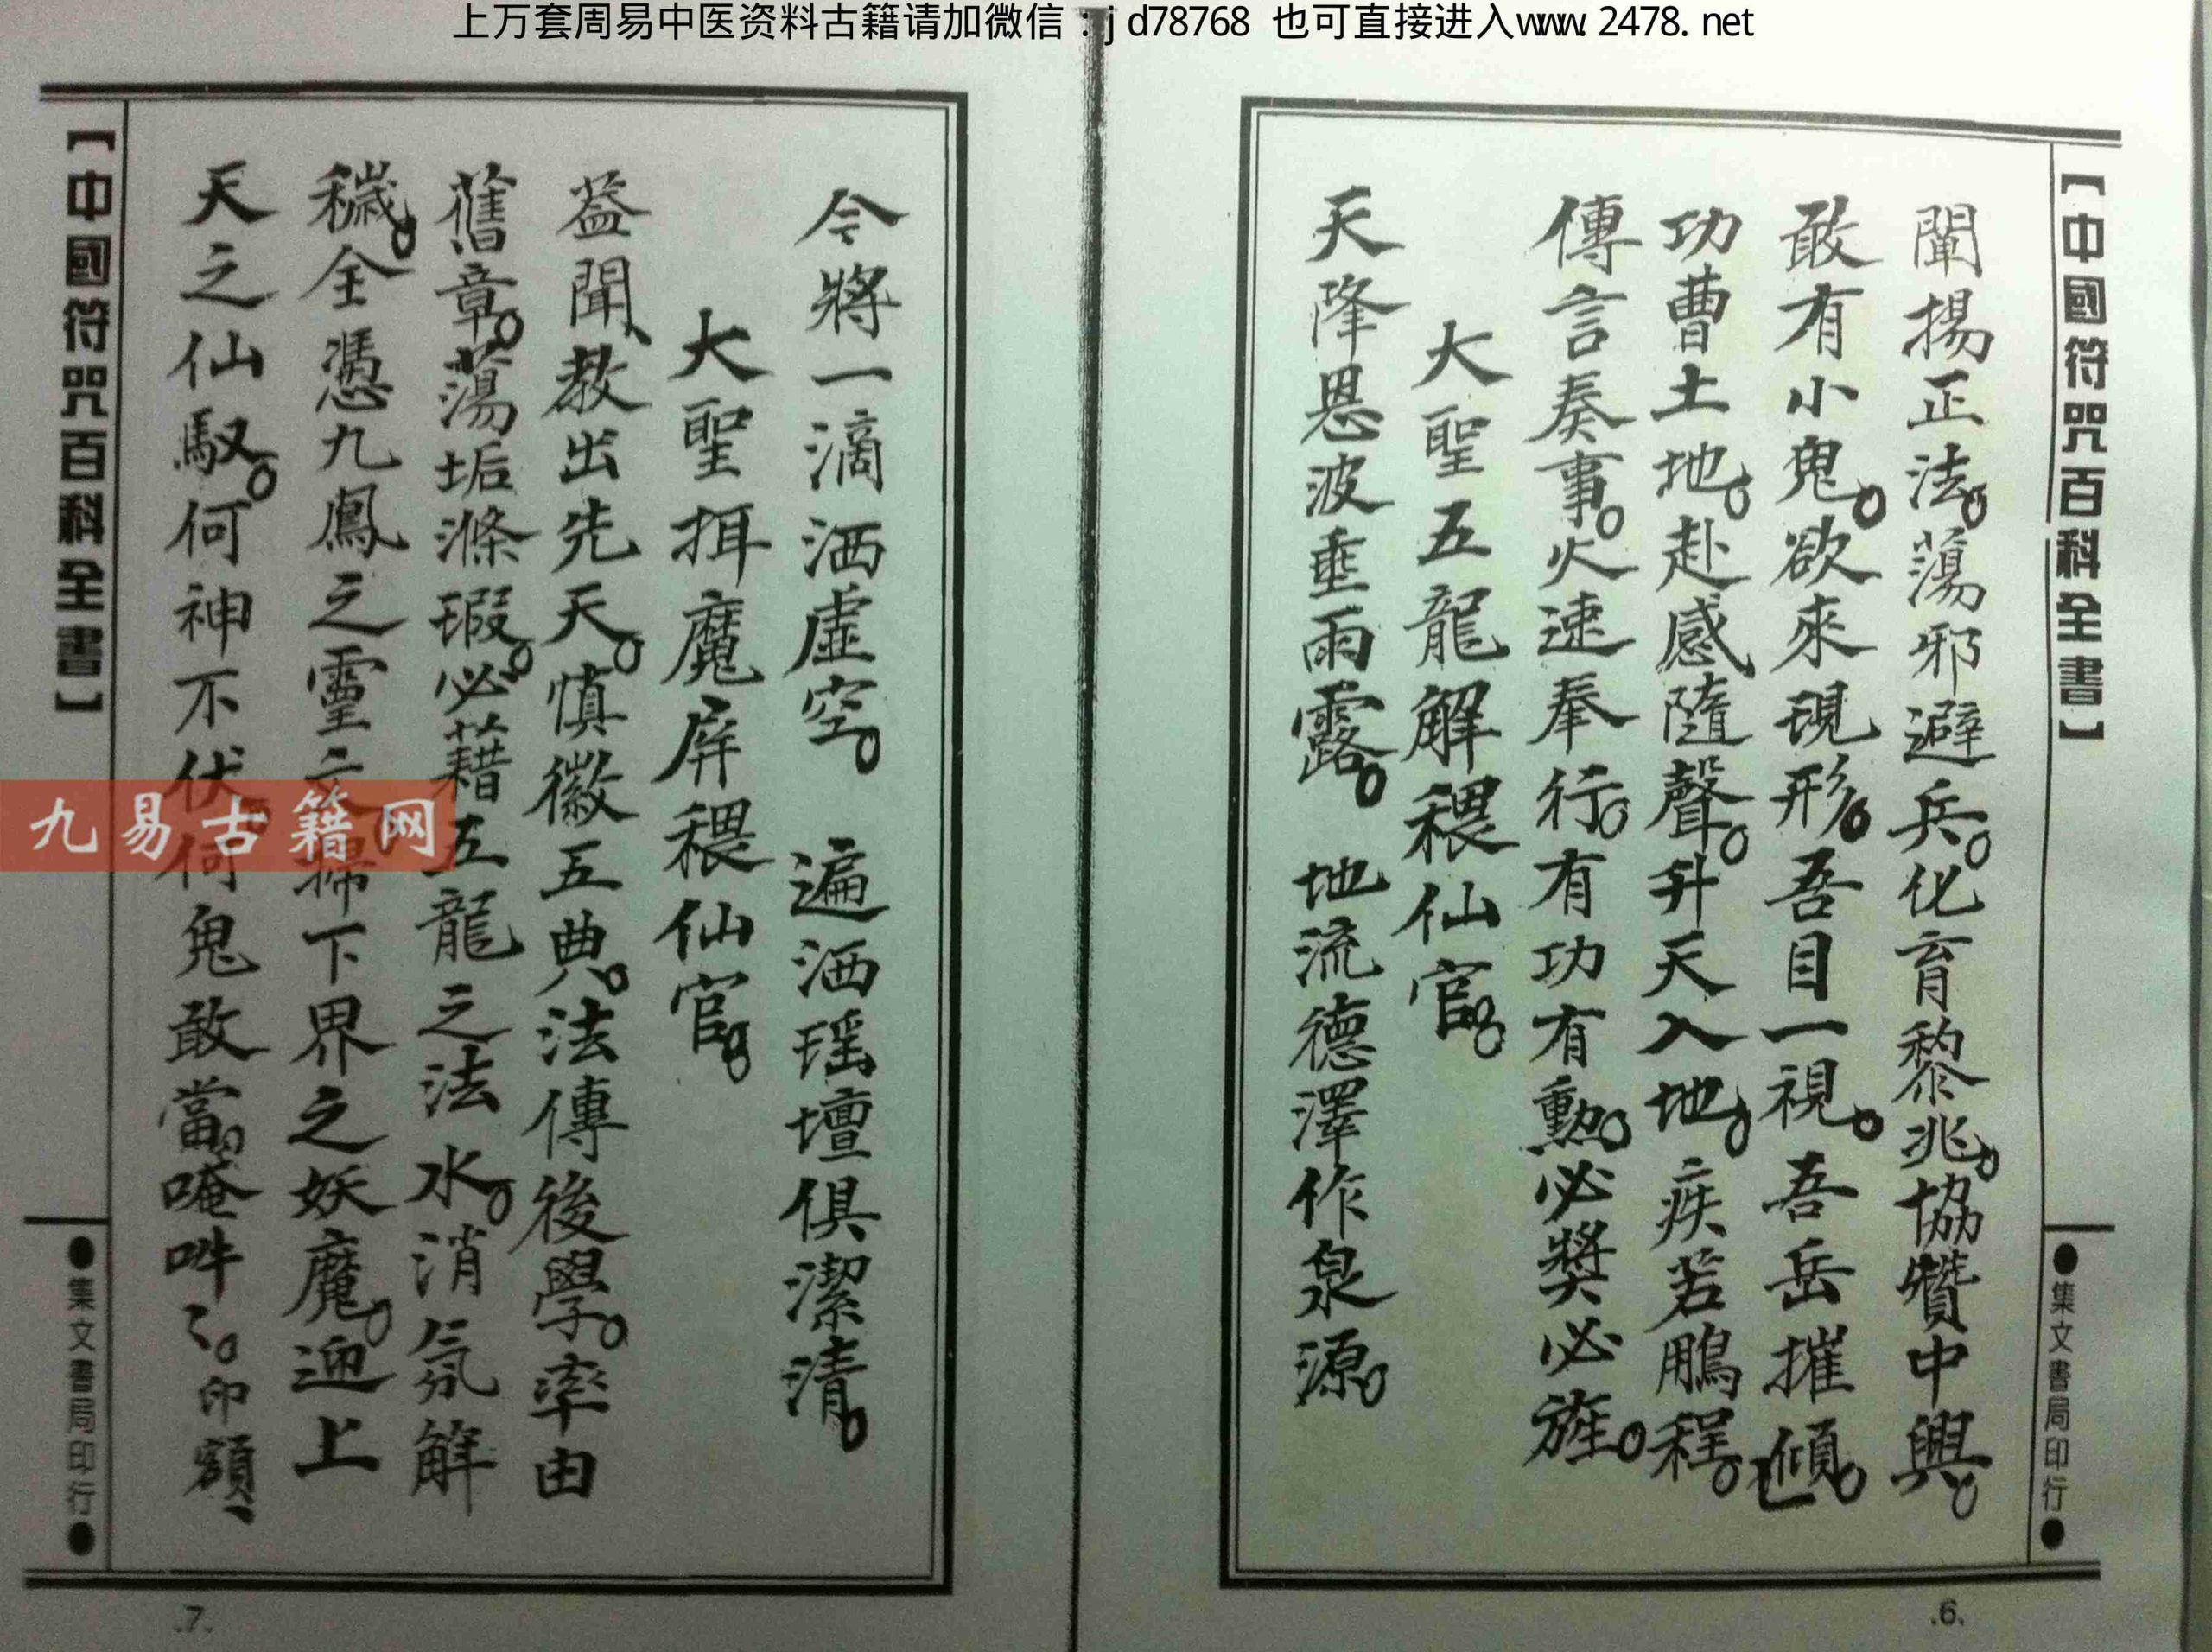 上万套周易中医资料古籍请加微信：jd78768 也可直接进入www.2478.net
【中國符咒百科全書】
●集文書局印行●
闡揚正法。蕩邪避兵。化育黎兆。協贊中興。
敢有小鬼。欲來現形。吾目一視。吾岳摧傾。
功曹土地。赴感隨聲。升天入地。疾若鵬程。
傳言奏事。火速奉行。有功有勲。必獎必旌。
大聖五龍解穢仙官。
天降恩波垂雨露。 地流德澤作泉源。
.6.
今將一滴洒虛空。 遍洒瑶壇俱潔清。
大聖捐魔屏穢仙官。
葢聞、教出先天。慎徽五典。法傳後學。率由
舊章。蕩垢滌瑕。必藉五龍之法水。消氛解
穢。全憑九鳳之靈文。掃下界之妖魔。迎上
天之仙馭。何神不伏。何鬼敢當。唵吽〻。印額、
【中國符咒百科全書】
●集文書局印行●
.7.
九易古籍网